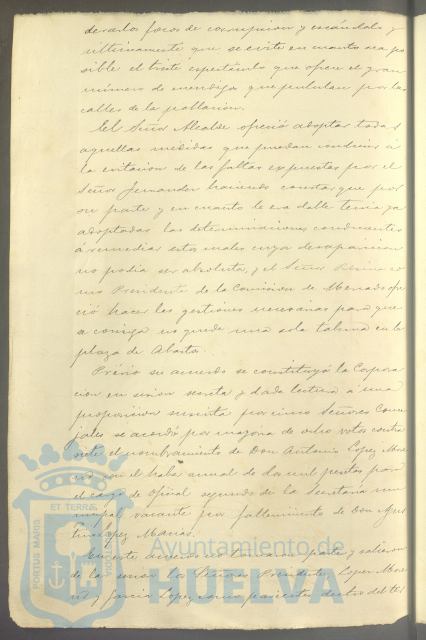 derados focos de corrupcion y escándalo y
ultimamente que se evite en cuanto sea po
sible el triste espectáculo que ofrece el gran
número de mendigos que pululan por las
calles de la poblacion.
El Señor Alcalde ofreció adoptar todas
aquellas medidas que puedan conducir á
la evitacion de las faltas expuestas por el
Señor Fernandez haciendo constar que por
su parte y en cuanto le era dable tenia ya
adoptadas las determinaciones conducentes
á remediar estos males cuya desaparicion
no podia ser absoluta, y el Señor co
mo Presidente de la Comision de Mercado ofre
ció hacer las gestiones necesarias para que
no quede una sola taberna en la
plaza de Abastos.
Prévio su acuerdo se constituyó la Corpora
cion en sesion secreta y dada lectura á una
proposicion suscrita por cinco Señores Conce
jales se acordó por mayoria de ocho votos contra
siete el nombramiento de Don Antonio Lopez More
no con el haber anual de dos mil pesetas para
el cargo de oficial segundo de la Secretaria mu
nicipal vacante por fallecimiento de Don Agus
tin Lopez Macias.
En este acuerdo no tomaron parte y salieron
de la sesion los Señores Presidente, Lopez More
no y Garcia Lopez como parientes dentro del
PORTUS MARIS ET TERRAE
Ayuntamiento de
HUELVA